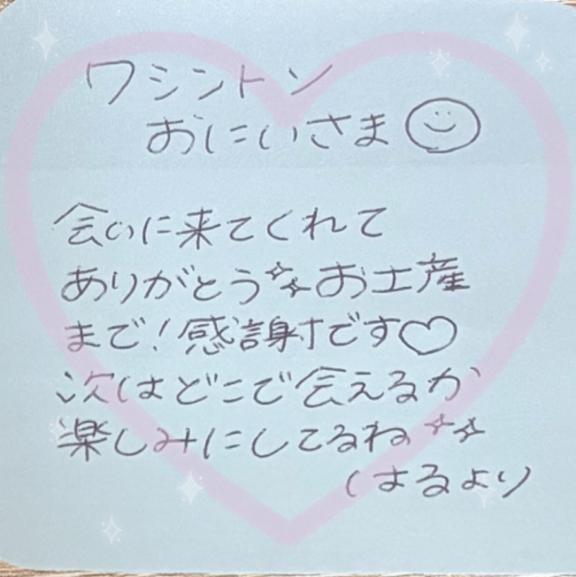 ワシントン
おにいさま
会いに来てくれて
ありがとう お土産
まで!感謝です♡
次はどこで会えるか
楽しみにしてるね
はるより